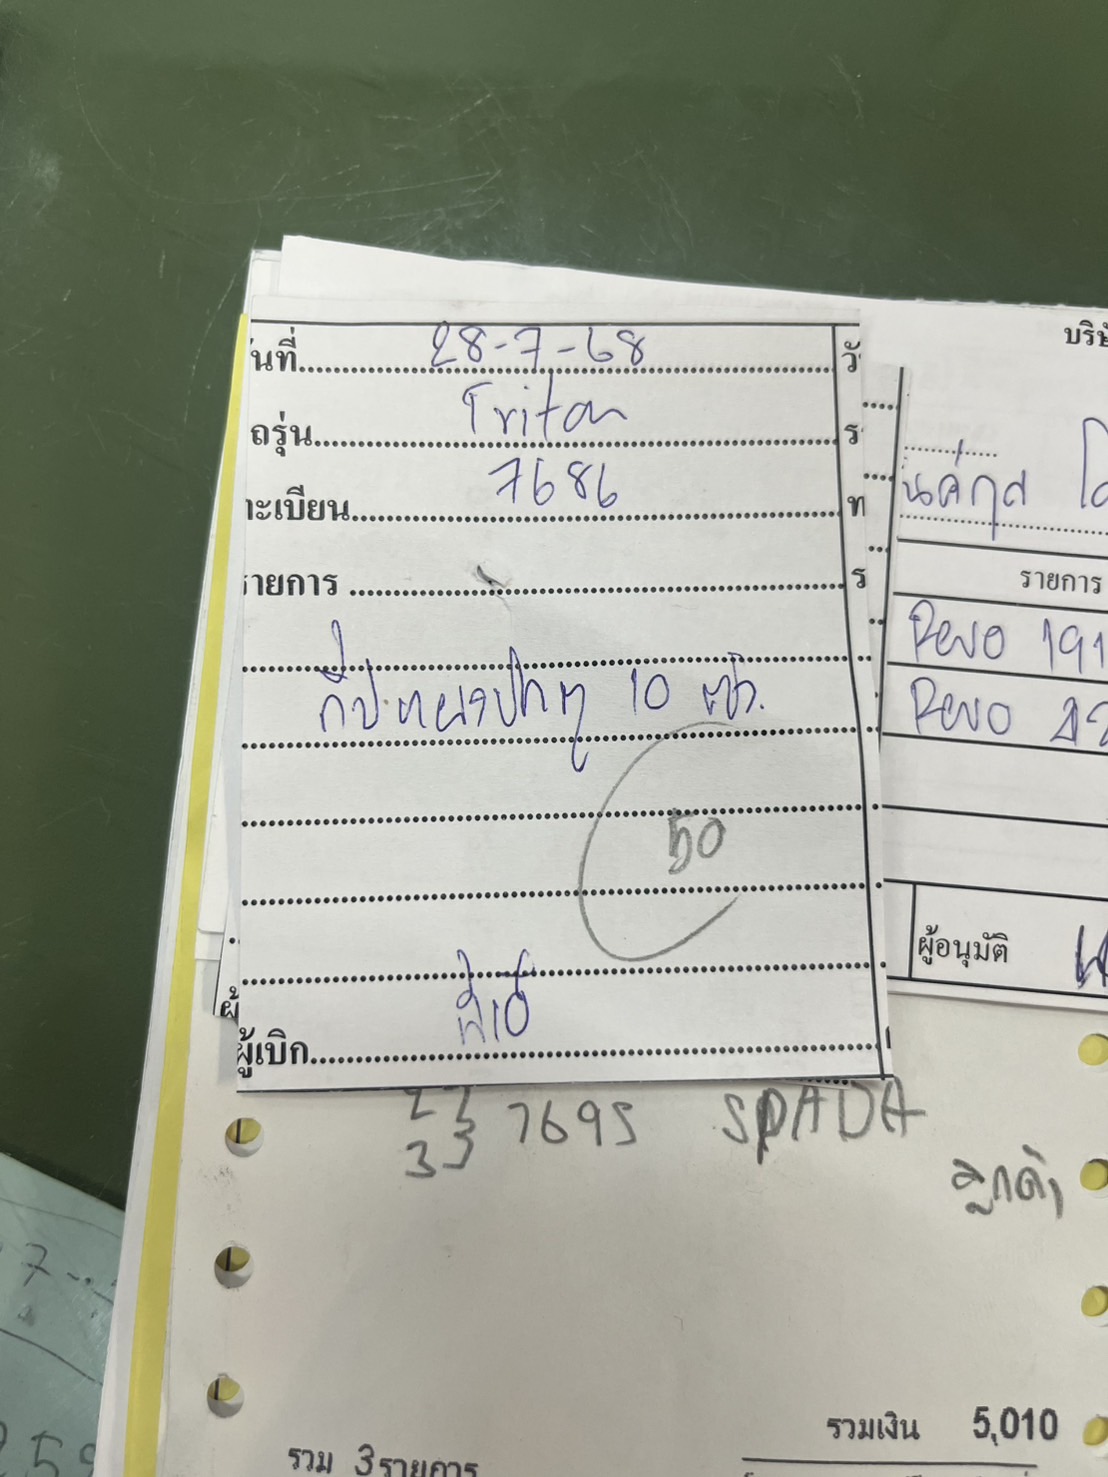 นที่ 28-7-68
ถรุ่น Triton
ทะเบียน 7686
รายการ
กิ๊ปแผงประตู 10 ตัว.
50
ผู้เบิก
วั
ร
ท
ร
บริษั
รายการ
Revo 191
Revo
ผู้อนุมัติ
33 7695 SPADA
ลูกค้า
รวมเงิน 5,010
รวม 3 รายการ